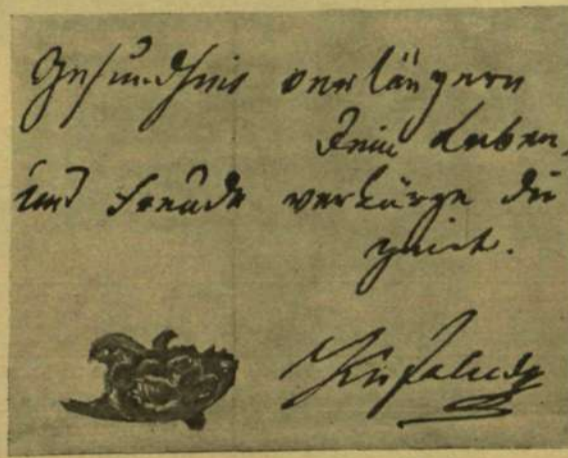 Gesundheit verlängere
Dein Leben,
und Freude verkürze die
Zeit.
Kisfaludy